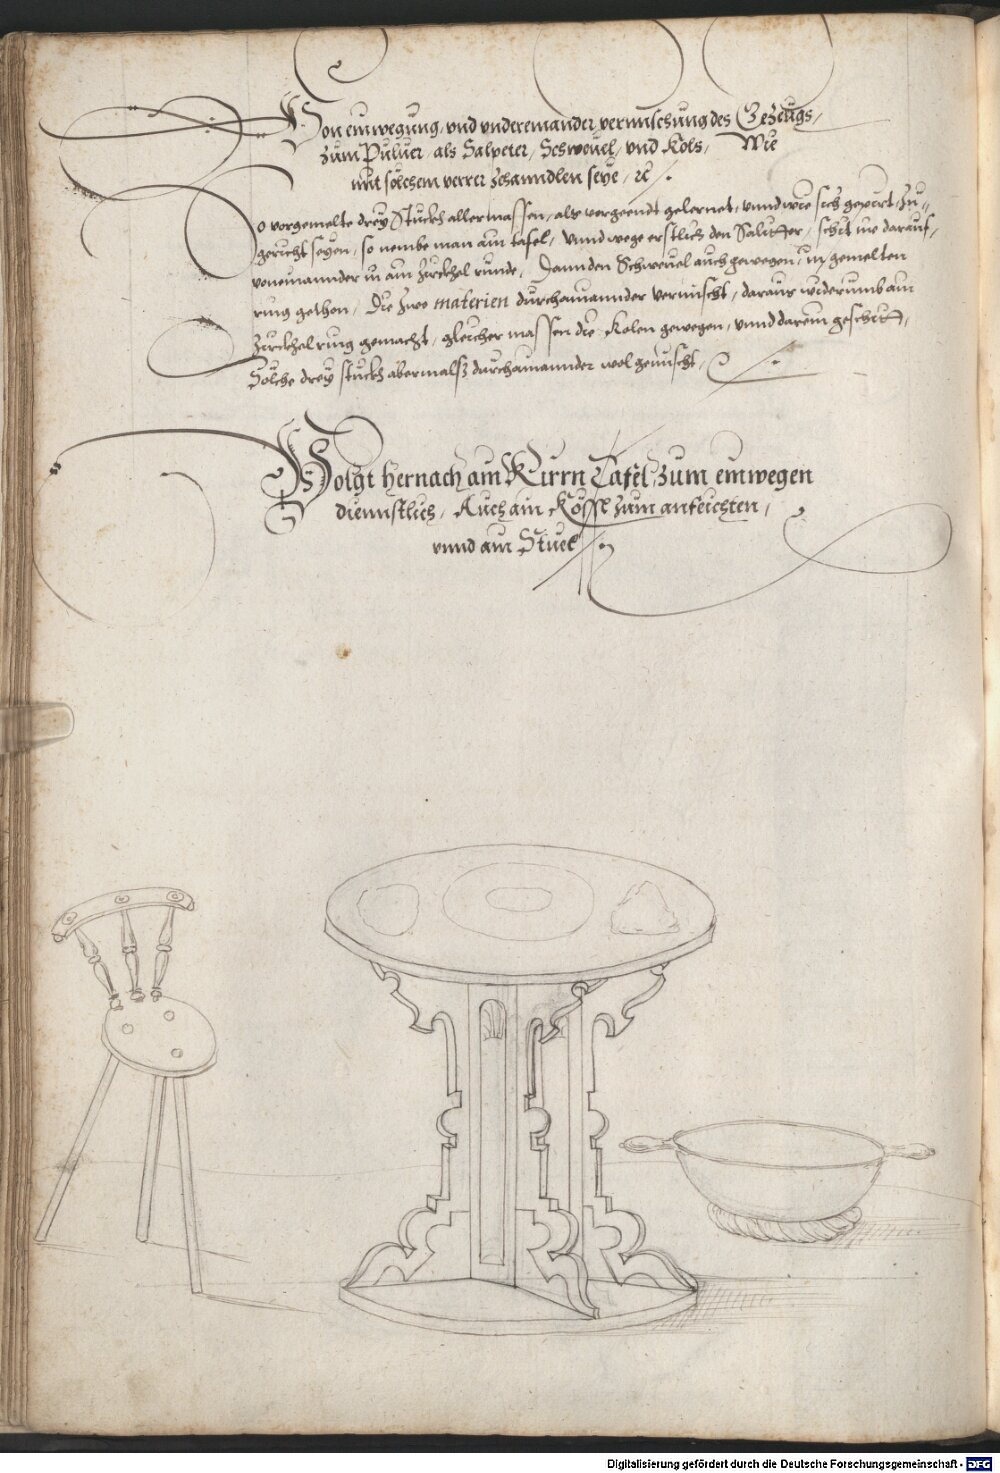 Von einwegung, vnd vndereinannder vermischung des Gezeugs,
zum Puluer, als Salpeter, Schweuel, vnd Kols, Wie
mit solchem verrer zehanndlen seye, ꝛc
So vorgemelte drey Stuckh allermassen, als vorgeendt gelernet, vnnd wie sichs gepürt, zu-
gericht seyen, so nembe man ain tafel, vnnd wege erstlich den Salitter, schit ine darauf,
voneinannder in ain Zirckhal runde, Dann den Schweuel auch gewegen, in gemelten
ring gethon, Die zwo materien durchainannder vermischt, daraus widerumb ain
Zirckhal ring gemacht, gleicher massen die Kolen gewegen, vnnd darein geschitt,
Solche drey stuckh abermalß durchainannder wol gemischt,
Volgt hernach ain Kirrn Tafel, zum einwegen
diennstlich, Auch ain Kössl zum anfeichten,
vnnd ain Stuel
Digitalisierung gefördert durch die Deutsche Forschungsgemeinschaft - DFG